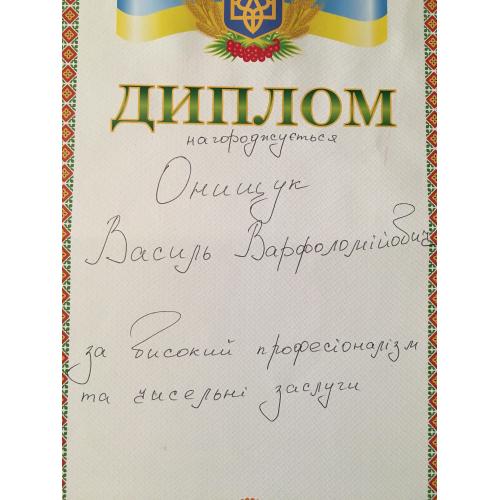 ДИПЛОМ
нагороджується
Онищук
Василь Варфоломійович
за високий професіоналізм
та чисельні заслуги